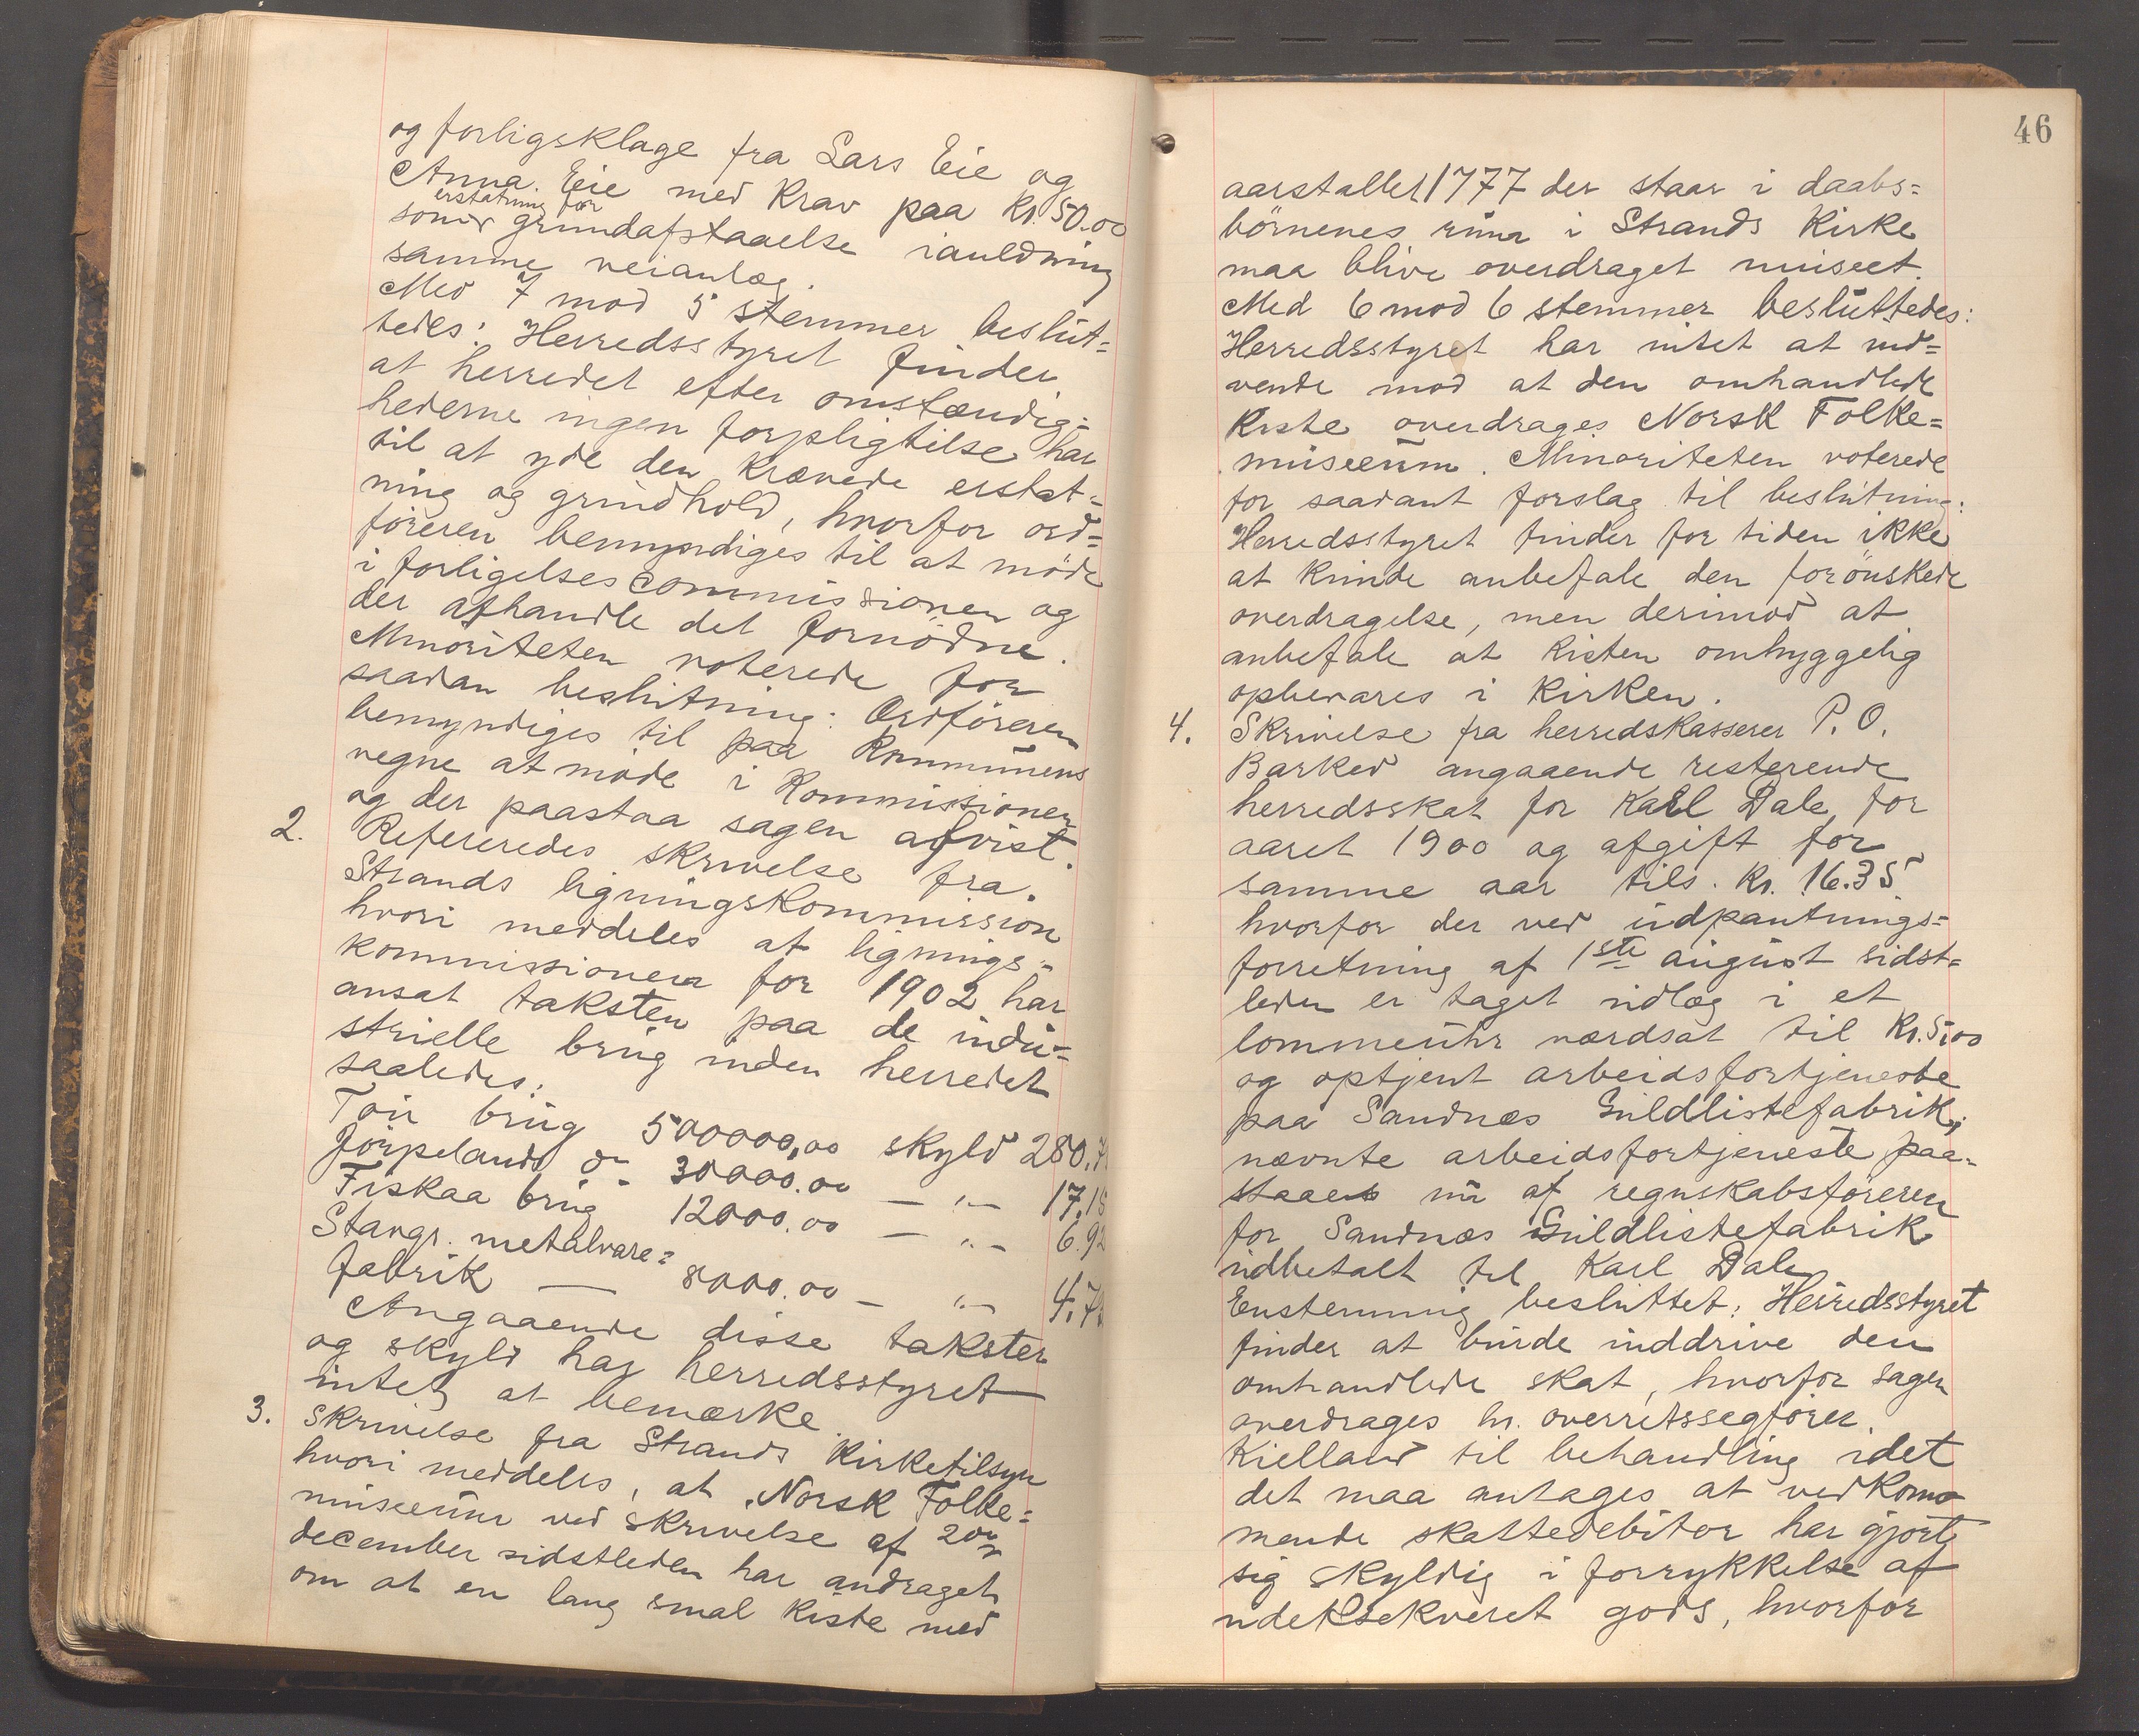 og forligsklage fra Lars Eie og
Anna Eie med Krav paa Kr. 50.00
erstatning for
som grundafstaaelse i anledning
samme veianlæg.
Med 7 mod 5 stemmer beslut=
tedes: Herredsstyret finder
at herredet efter omstændig=
hederne ingen forpligtelse har
til at yde den krævede erstat=
ning og grindhold, hvorfor ord=
føreren bemyndiges til at møde
i forligelsescommissionen og
der afhandle det fornødne.
Minoriteten voterede for
saadan beslutning: Ordføreren
bemyndiges til paa Kommunens
vegne at møde i Kommissionen
og der paastaa sagen afvist.
2. Refereredes skrivelse fra
Strands ligningskommission
hvori meddeles at lignings=
kommissionen for 1902 har
ansat taksten paa de indu=
strielle brug inden herredet
saaledes:
Tou brug 500000,00 skyld 280.7
Jørpeland do 30000.00 — " — 17.15
Fiskaa brug 12000.00 — " — 6.92
Stavgr. metalvare=
fabrik — 8000.00 — " — 4.7
Angaaende disse takster
og skyld har herredsstyret
intet at bemærke.
3. Skrivelse fra Strands Kirketilsyn
hvori meddeles, at Norsk Folke=
museum ved skrivelse af 20de
december sidstleden har andraget
om at en lang smal Kiste med
46
aarstallet 1777 der staar i daabs=
børnenes rum i Strands Kirke
maa blive overdraget museet.
Med 6 mod 6 stemmer besluttedes:
Herredsstyret har intet at ind=
vende mod at den omhandlede
Kiste overdrages Norsk Folke=
museum. Minoriteten voterede
for saadant forslag til beslutning:
Herredsstyret finder for tiden ikke
at kunde anbefale den forønskede
overdragelse, men derimod at
anbefale at Kisten omhyggelig
opbevares i Kirken.
4. Skrivelse fra herredskasserer P. O.
Barkved angaaende resterende
herredsskat for Karl Dale for
aaret 1900 og afgift for
samme aar tils. Kr. 16.35
hvorfor der ved udpantnings=
forretning af 1ste august sidst=
leden er taget udlæg i et
lommeuhr værdsat til Kr. 5.00
og optjent arbeidsfortjeneste
paa Sandnæs Guldlistefabrik,
nævnte arbeidsfortjeneste paa=
staaes nu af regnskabsføreren
for Sandnæs Guldlistefabrik
udbetalt til Karl Dale
Enstemmig besluttet: Herredsstyret
finder at burde inddrive den
omhandlede skat, hvorfor sagen
overdrages hr. overretssagfører
Kielland til behandling idet
det maa antages at vedkom=
mende skattedebitor har gjort
sig skyldig i forrykkelse af
udeksekveret gods, hvorfor